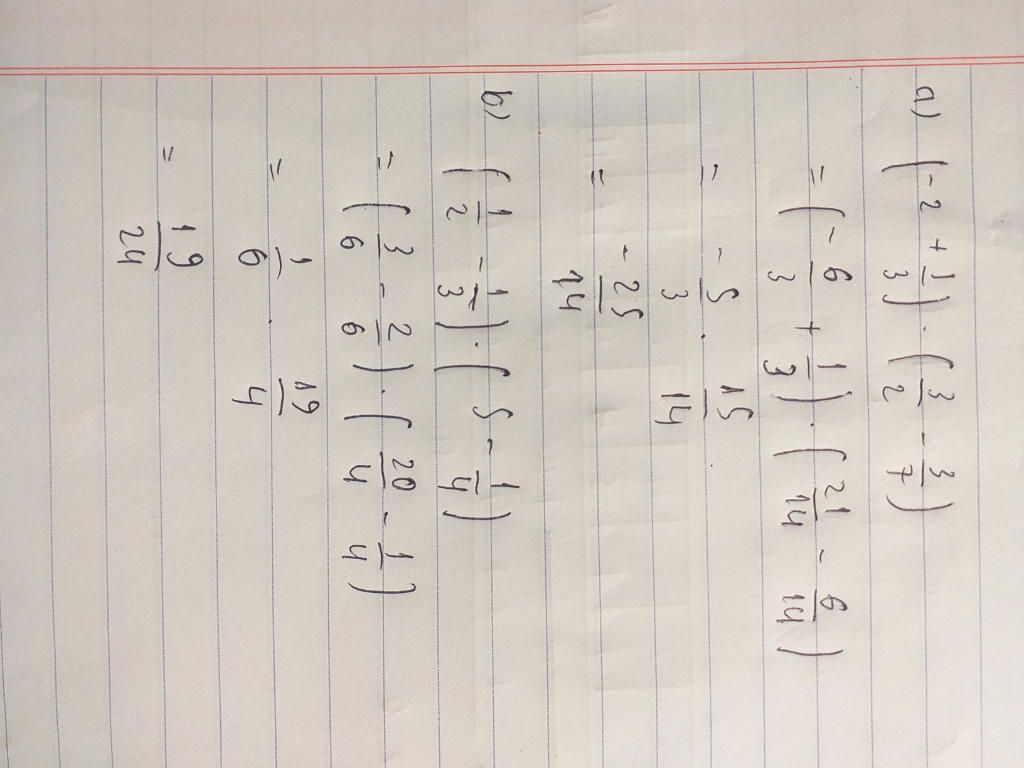 a) (-2 + 1/3) . (3/2 - 3/7)
= (-6/3 + 1/3) . (21/14 - 6/14)
= -5/3 . 15/14
= -25/14
b) (1/2 - 1/3) . (5 - 1/4)
= (3/6 - 2/6) . (20/4 - 1/4)
= 1/6 . 19/4
= 19/24